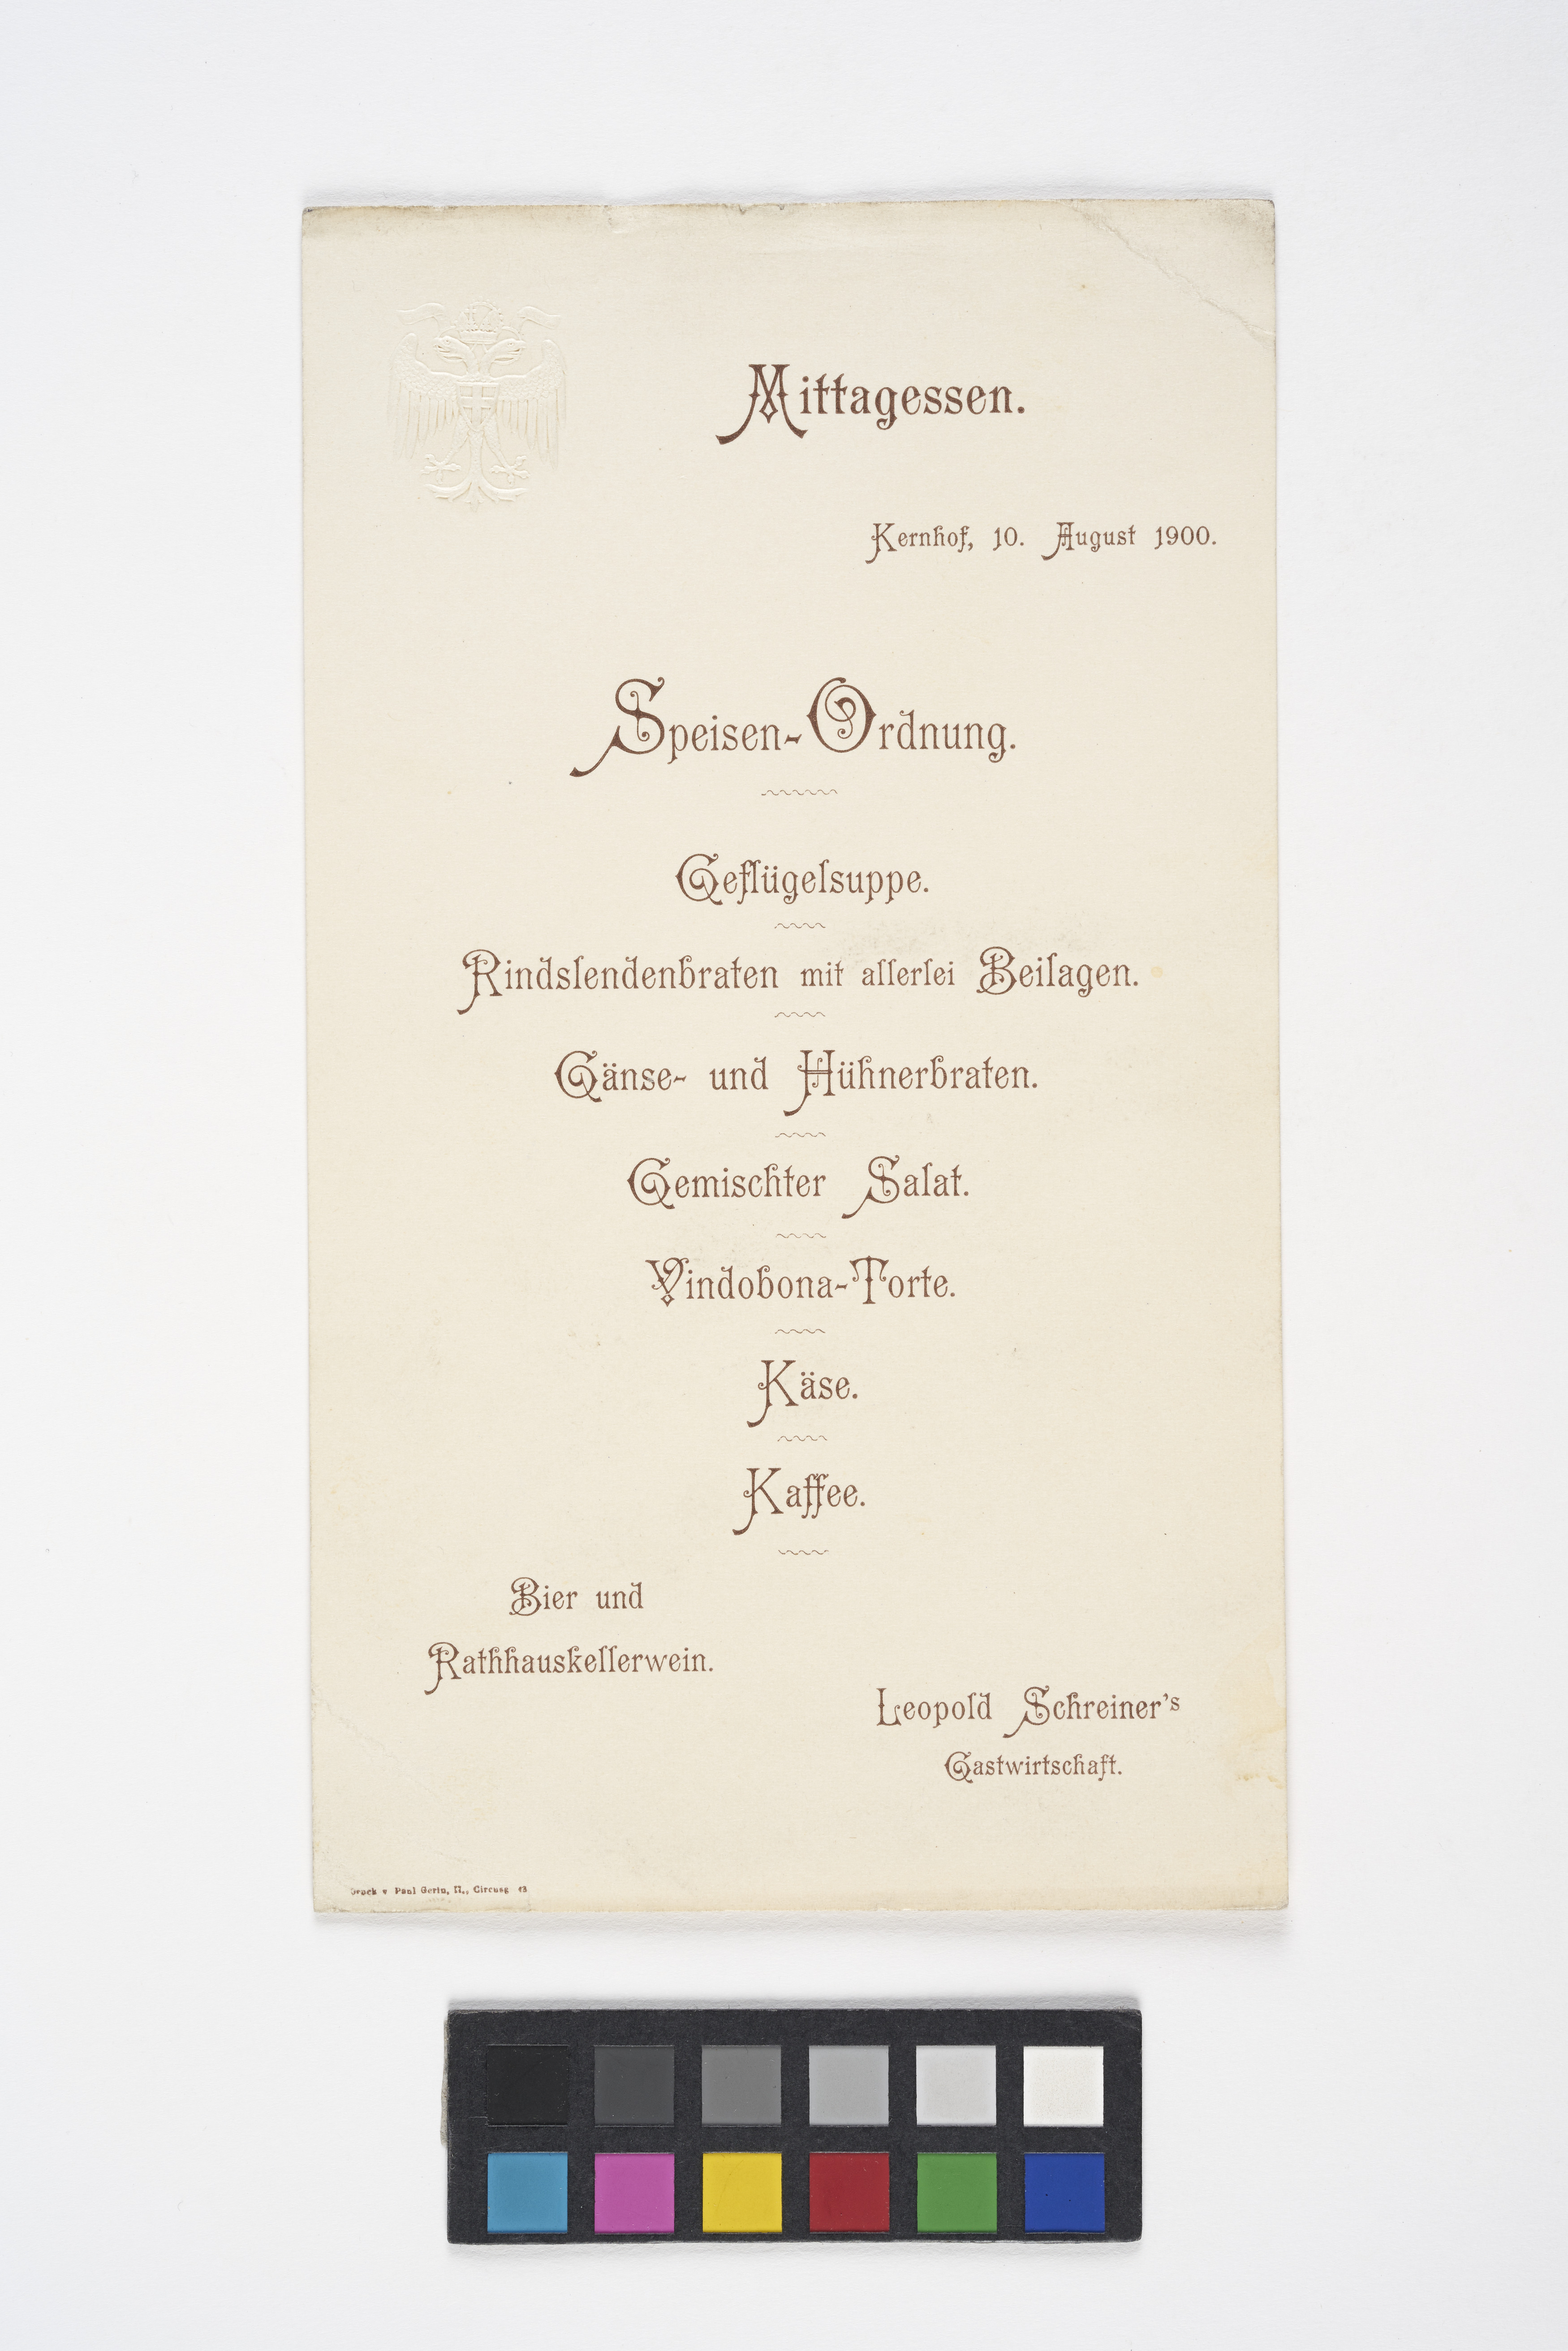 Mittagessen.
Kernhof, 10. August 1900.
Speisen-Ordnung.
Geflügelsuppe.
Rindslendenbraten mit allerlei Beilagen.
Gänse- und Hühnerbraten.
Gemischter Salat.
Vindobona-Torte.
Käse.
Kaffee.
Bier und
Rathhauskellerwein.
Leopold Schreiner's
Gastwirtschaft.
Druck v. Paul Gerin, II., Circusg. 13